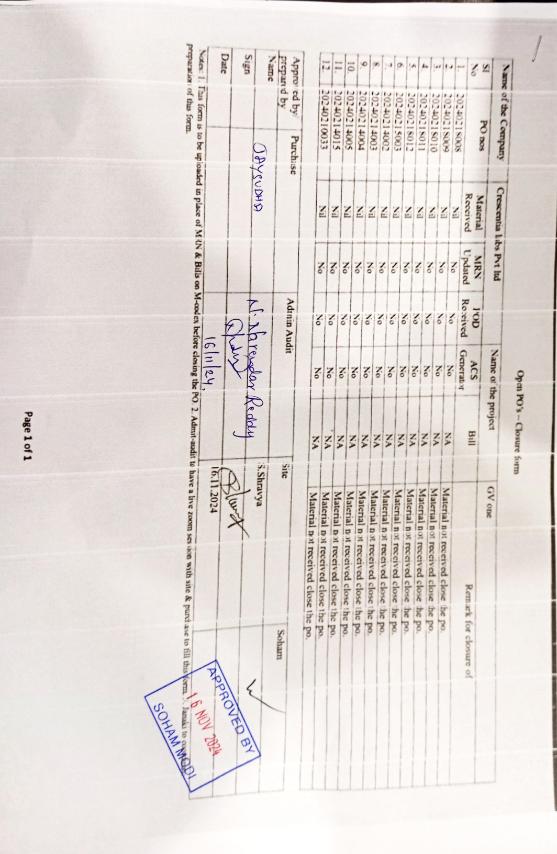 Open PO's – Closure form
Name of the Company Crescentia Labs Pvt ltd Name of the project GV one
Sl No PO nos Material Received MRN Updated POD Received ACS Generator Bill Remark for closure of
1. 20240218008 Nil No No No NA Material not received close the po.
2. 20240218009 Nil No No No NA Material not received close the po.
3. 20240218010 Nil No No No NA Material not received close the po.
4. 20240218011 Nil No No No NA Material not received close the po.
5. 20240218012 Nil No No No NA Material not received close the po.
6. 20240215003 Nil No No No NA Material not received close the po.
7. 20240214002 Nil No No No NA Material not received close the po.
8. 20240214003 Nil No No No NA Material not received close the po.
9. 20240214004 Nil No No No NA Material not received close the po.
10. 20240214005 Nil No No No NA Material not received close the po.
11. 20240214015 Nil No No No NA Material not received close the po.
12. 20240210033 Nil No No No NA Material not received close the po.
Approved by/ prepared by Purchase Admin Audit Site Soham
Name JAYSUDHA N. Narendar Reddy S.Shravya
Sign
Date 16/11/24, 16.11.2024
APPROVED BY
16 NOV 2024
SOHAM MODI
Notes: 1. This form is to be uploaded in place of MRN & Bills on M-codes before closing the PO. 2. Admit-audit to have a live zoom session with site & purchase to fill this form. Janaki to
preparation of this form.
Page 1 of 1